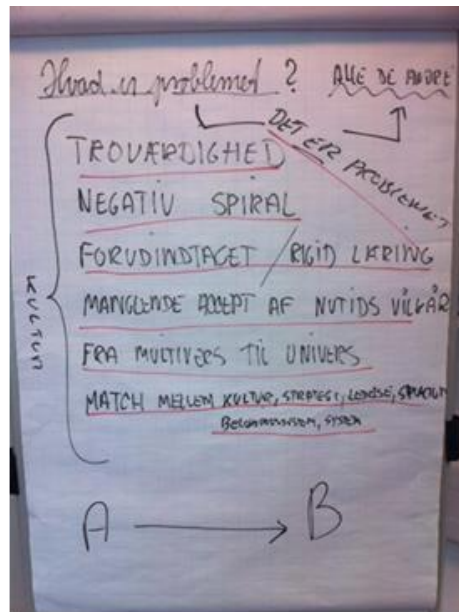 Hvad er problemet? ALLE DE ANDRE
DET ER PROBLEMET
TROVÆRDIGHED
NEGATIV SPIRAL
FORUDINDTAGET / RIGID LÆRING
MANGLENDE ACCEPT AF NUTIDS VILKÅR
FRA MULTIVERS TIL UNIVERS
MATCH MELLEM KULTUR, STRATEGI, LEDELSE,
SYSTEM
KULTUR
A → B